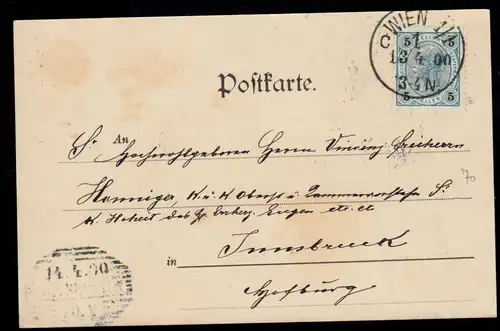 WIEN 1/1
C 1
13 4 00
3-4 N
5 5
5 5
Postkarte.
An
Sr Hochwohlgeboren Herrn Vincenz Freiherrn
Henniger, K. u. K. Oberst u. Kammervorsteher Sr
K. Hoheit des Hz. Erzherz. Eugen etc. etc
70
in Innsbruck
Hofburg
14.4.00